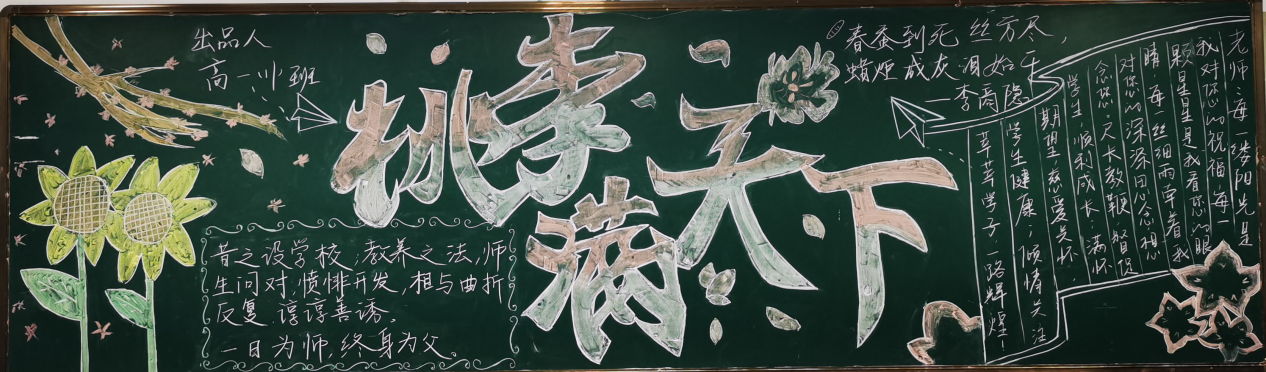 出品人
高一小班
桃李
满
天下
春蚕到死丝方尽，
蜡炬成灰泪始干
—李商隐
昔之设学校，教养之法，师
生问对，愤悱开发，相与曲折
反复，谆谆善诱。
一日为师，终身为父。
老师：每一缕阳光是
我对您的祝福，每一
颗星星是我看您的眼
睛，每一丝细雨牵着我
对您的深深思念想
念您。天长教鞭督促
学生，顺利成长；满怀
期望慈爱关怀
学生健康；倾情关注
莘莘学子，一路辉煌！